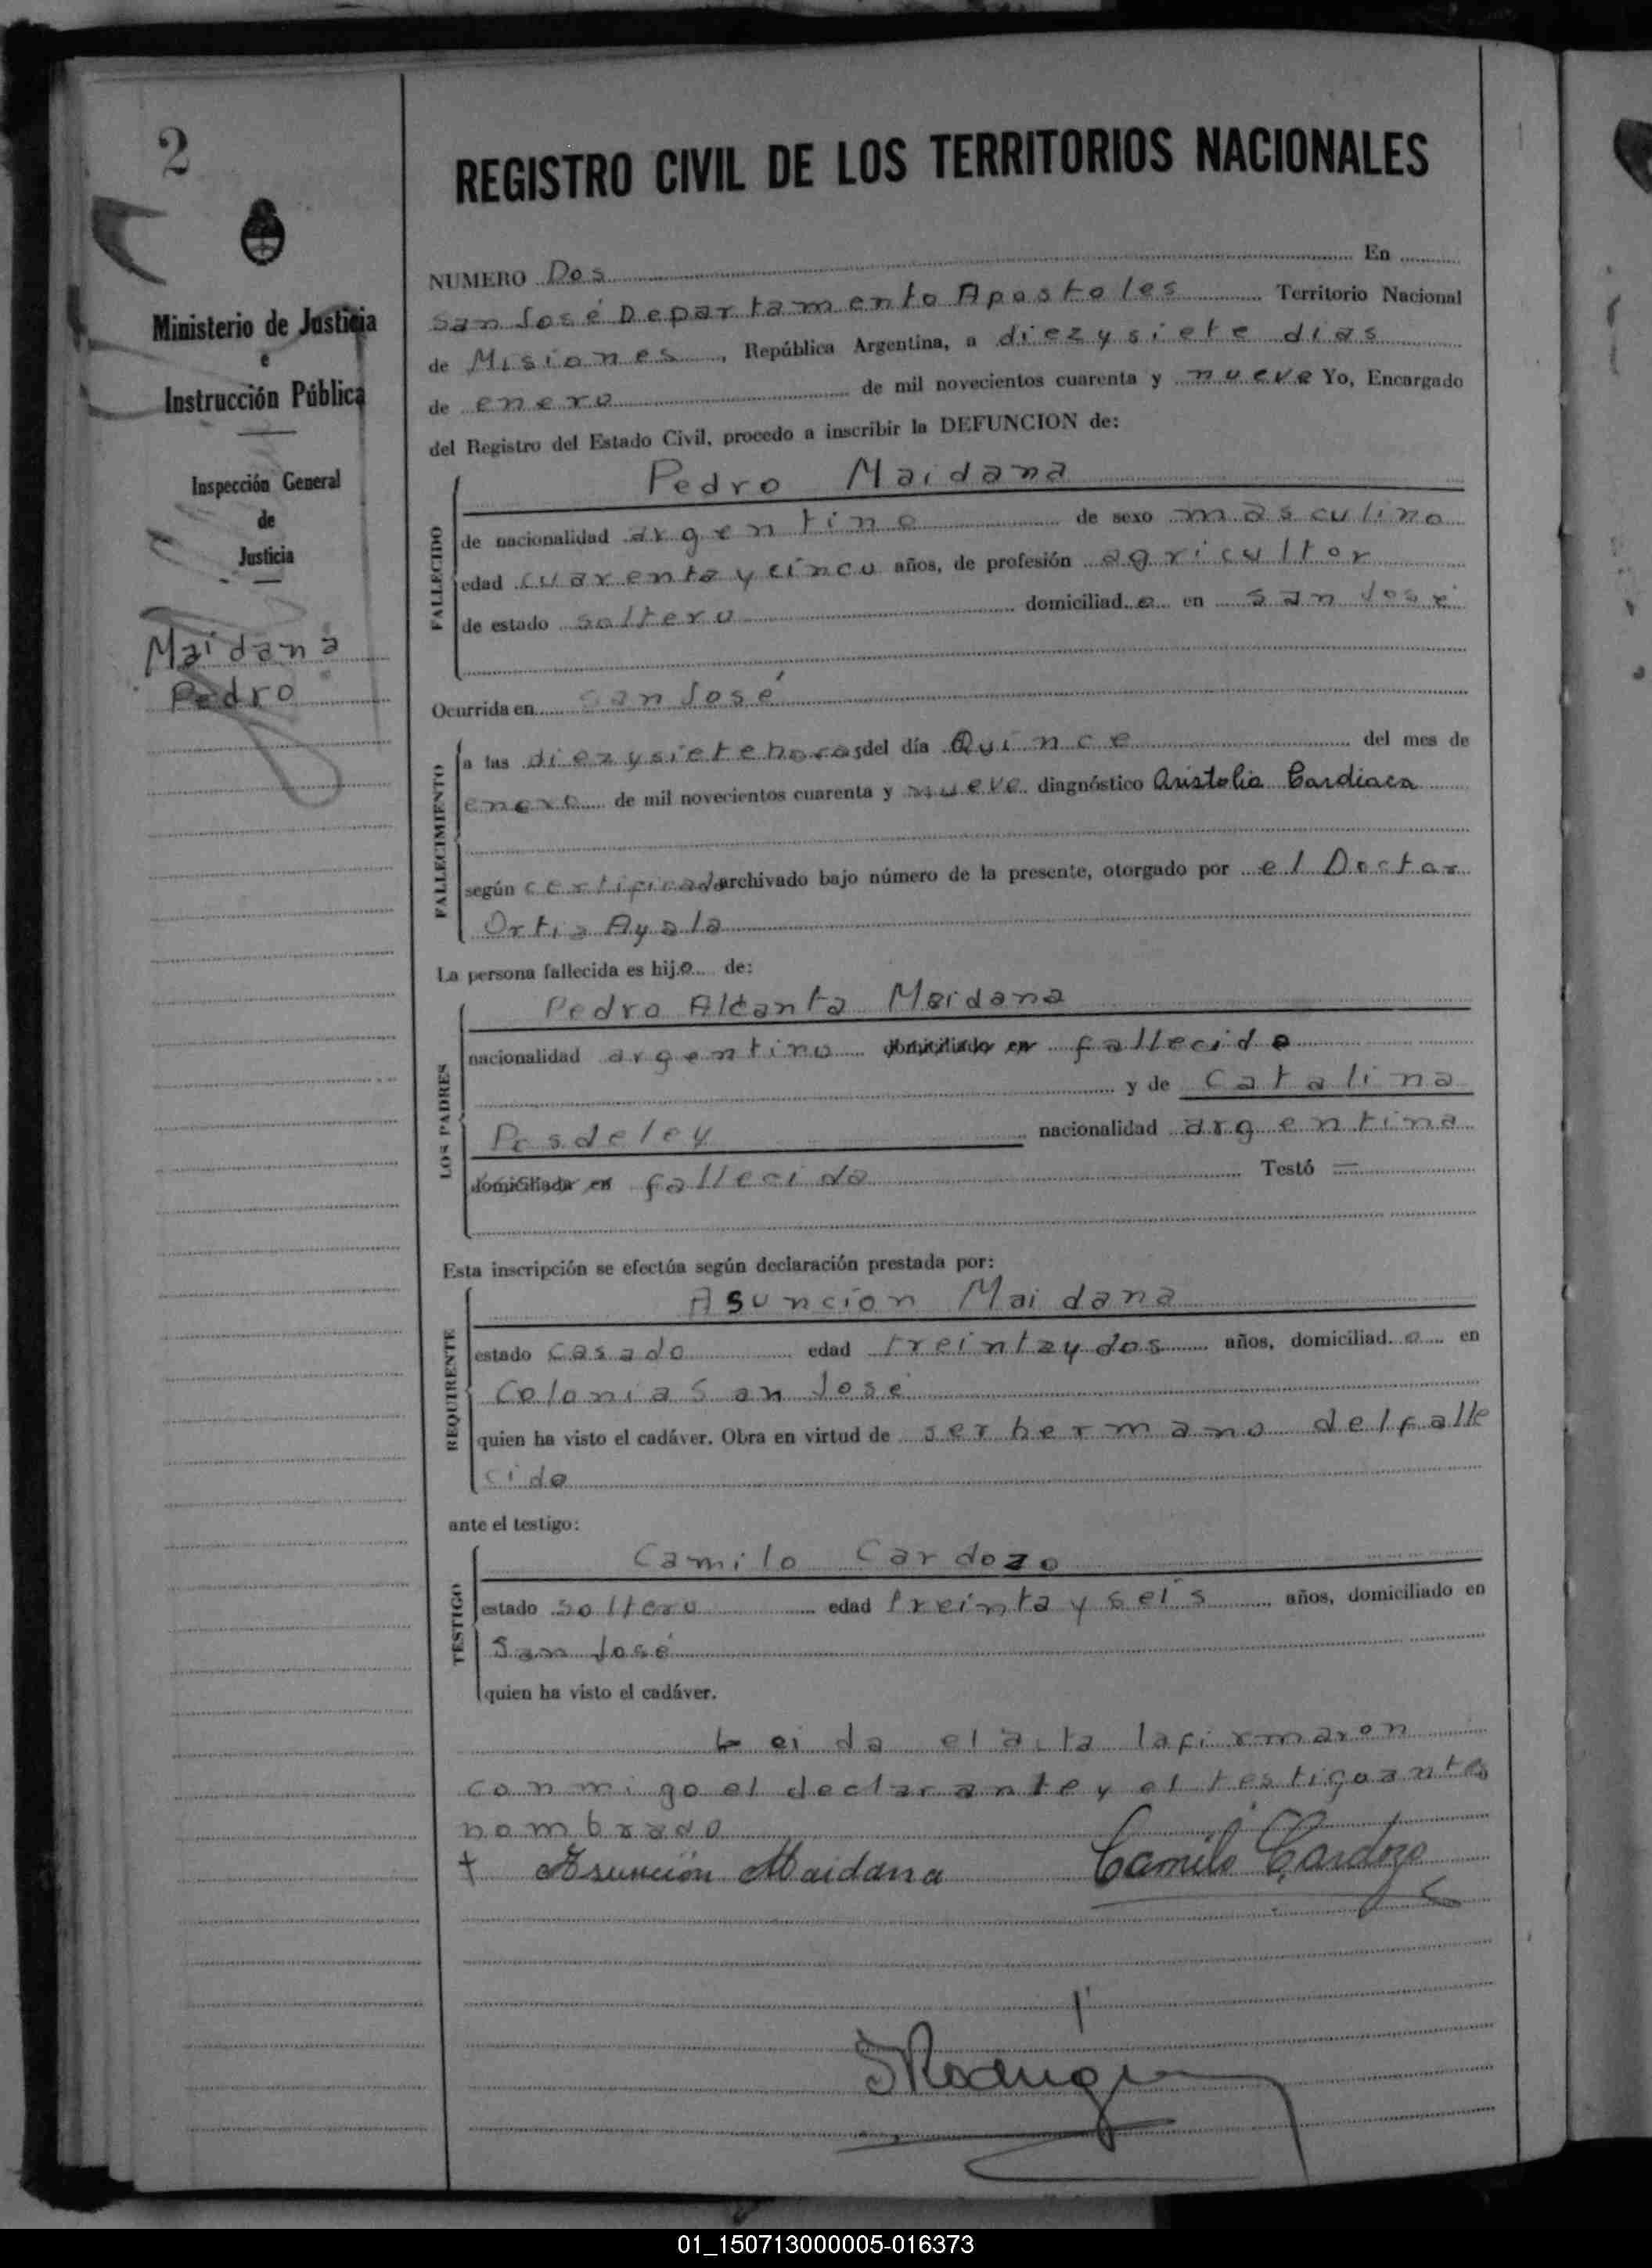 2
Ministerio de Justicia
e
Instrucción Pública
Inspección General
de
Justicia
Maidana
Pedro
REGISTRO CIVIL DE LOS TERRITORIOS NACIONALES
NUMERO Dos En
San José Departamento Apostoles Territorio Nacional
de Misiones, República Argentina, a diez y siete dias
de enero de mil novecientos cuarenta y nueve Yo, Encargado
del Registro del Estado Civil, procedo a inscribir la DEFUNCION de:
Pedro Maidana
FALLECIDO
de nacionalidad argentino de sexo masculino
edad cuarenta y cinco años, de profesión agricultor
de estado soltero domiciliado en San José
Ocurrida en San José
FALLECIMIENTO
a las diez y siete horas del día Quince del mes de
enero de mil novecientos cuarenta y nueve diagnóstico Aristolia Cardiaca
según certificado archivado bajo número de la presente, otorgado por el Doctor
Ortiz Ayala
La persona fallecida es hijo de:
LOS PADRES
Pedro Alcanta Maidana
nacionalidad argentino domiciliado en fallecido
y de Catalina
nacionalidad argentina
domiciliada en fallecida Testó —
Esta inscripción se efectúa según declaración prestada por:
REQUIRENTE
Asuncion Maidana
estado casado edad treinta y dos años, domiciliado en
Colonia San José
quien ha visto el cadáver. Obra en virtud de ser hermano del falle
cido
ante el testigo:
TESTIGO
Camilo Cardozo
estado soltero edad treinta y seis años, domiciliado en
San José
quien ha visto el cadáver.
Leida el acta la firmaron
conmigo el declarante y el testigo antes
nombrado
+ Asunción Maidana Camilo Cardozo
01_150713000005-016373